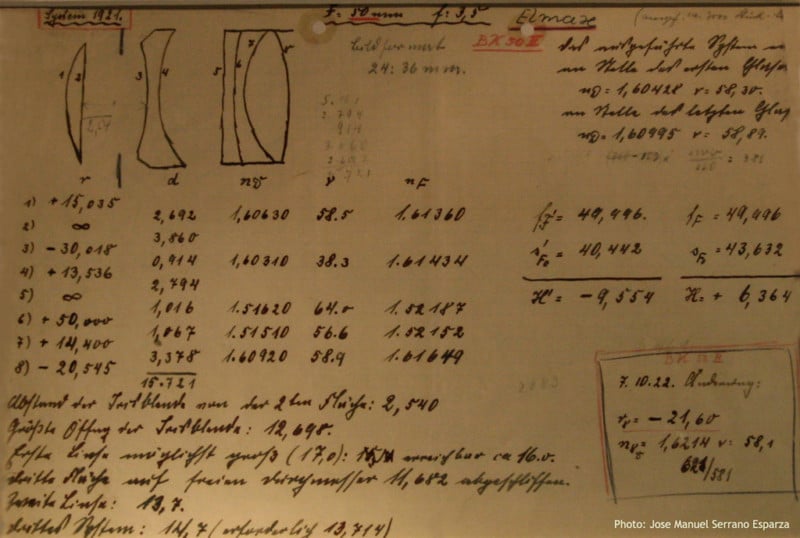 System 1921.
F = 50 mm f: 3,5 Elmax
BK 50 II
Bildformat
24:36 mm.
Das ausgeführte System
an Stelle des ersten Glases
nD = 1,60428 ν = 58,30.
an Stelle des letzten Glas
nD = 1,60995 ν = 58,89.
1 2 3 4 5 6 7 8
r d nD ν nF
1) + 15,035
2,692 1,60630 58.5 1.61360
2) ∞
3,860
3) − 30,018
0,914 1,60310 38.3 1.61434
4) + 13,536
2,794
5) ∞
1,016 1.51620 64.0 1.52187
6) + 50,000
1,067 1.51510 56.6 1.52152
7) + 14,400
3,378 1.60920 58.9 1.61649
8) − 20,545
15.721
f'F = 49,996. fF = 49,996
s'F0 = 40,442 sF0 = 43,632
H' = − 9,554 H = + 6,364
BK 50 II
7.10.22. Änderung:
r8 = − 21,60
nD5 = 1,6214 ν = 58,1
621/581
Abstand der Irisblende von der 2ten Fläche: 2,540
Größte Öffng der Irisblende: 12,698.
Erste Linse möglichst groß (17,0): erreichbar ca 16.0.
Dritte Fläche auf freien Durchmesser 11,682 abgeschliffen.
Zweite Linse: 13,7.
Drittes System: 14,7 (erforderlich 13,714)
Photo: Jose Manuel Serrano Esparza